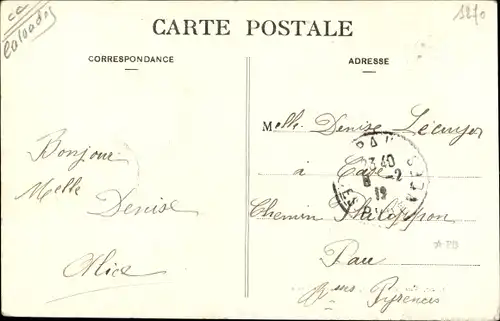 ca
Calvados
1270
CARTE POSTALE
CORRESPONDANCE
ADRESSE
Bonjour
Melle
Denise
Alice
Melle Denise Lécuyer
à
Chemin Philippon
Pau
Pyrenees
PAU
23 40
8 -2
12